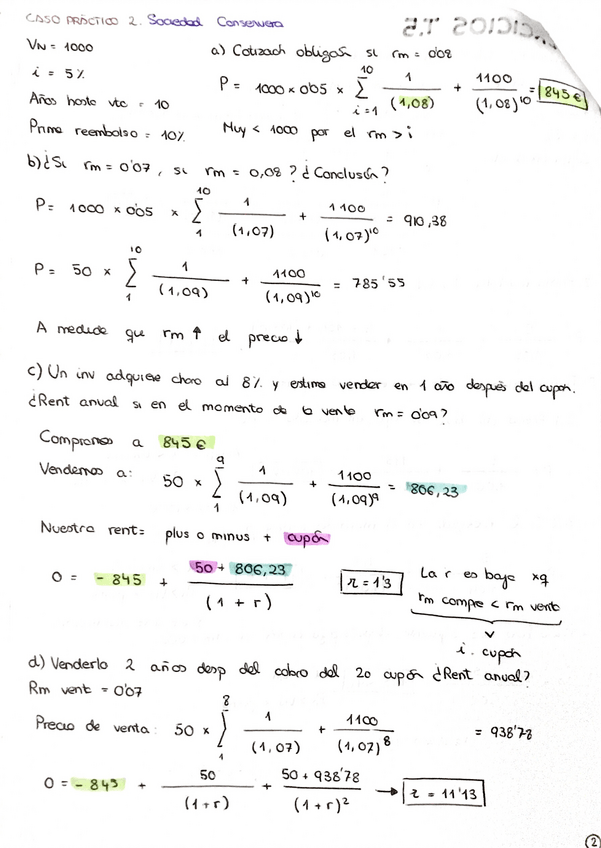 CASO PRÁCTICO 2. Sociedad Conservera
VN = 1000
i = 5%
Años hasta vto = 10
Prima reembolso = 10%
a) Cotizach obligaón si rm = 0'08
P = 1000 x 0'05 x 10 Σ i=1 1 / (1,08) + 1100 / (1,08)^10 = 845 €
Muy < 1000 por el rm > i
b) ¿Si rm = 0'07, si rm = 0,08? ¿Conclusión?
P = 1000 x 0'05 x 10 Σ 1 1 / (1,07) + 1100 / (1,07)^10 = 910,38
P = 50 x 10 Σ 1 1 / (1,09) + 1100 / (1,09)^10 = 785'55
A medida que rm ↑ el precio ↓
c) Un inv adquiere ahora al 8% y estima vender en 1 año después del cupón.
¿Rent anual si en el momento de la venta rm = 0'09?
Compramos a 845 €
Vendemos a: 50 x 9 Σ 1 1 / (1,09) + 1100 / (1,09)^9 = 806,23
Nuestra rent = plus o minus + cupón
0 = - 845 + 50 + 806,23 / (1 + r)
r = 1'3
La r es baja xq
rm compra < rm venta
i. cupón
d) Venderlo 2 años desp del cobro del 2o cupón ¿Rent anual?
Rm vent = 0'07
Precio de venta: 50 x 8 Σ 1 1 / (1,07) + 1100 / (1,07)^8 = 938'78
0 = - 845 + 50 / (1+r) + 50 + 938'78 / (1+r)^2 → r = 11'13
2